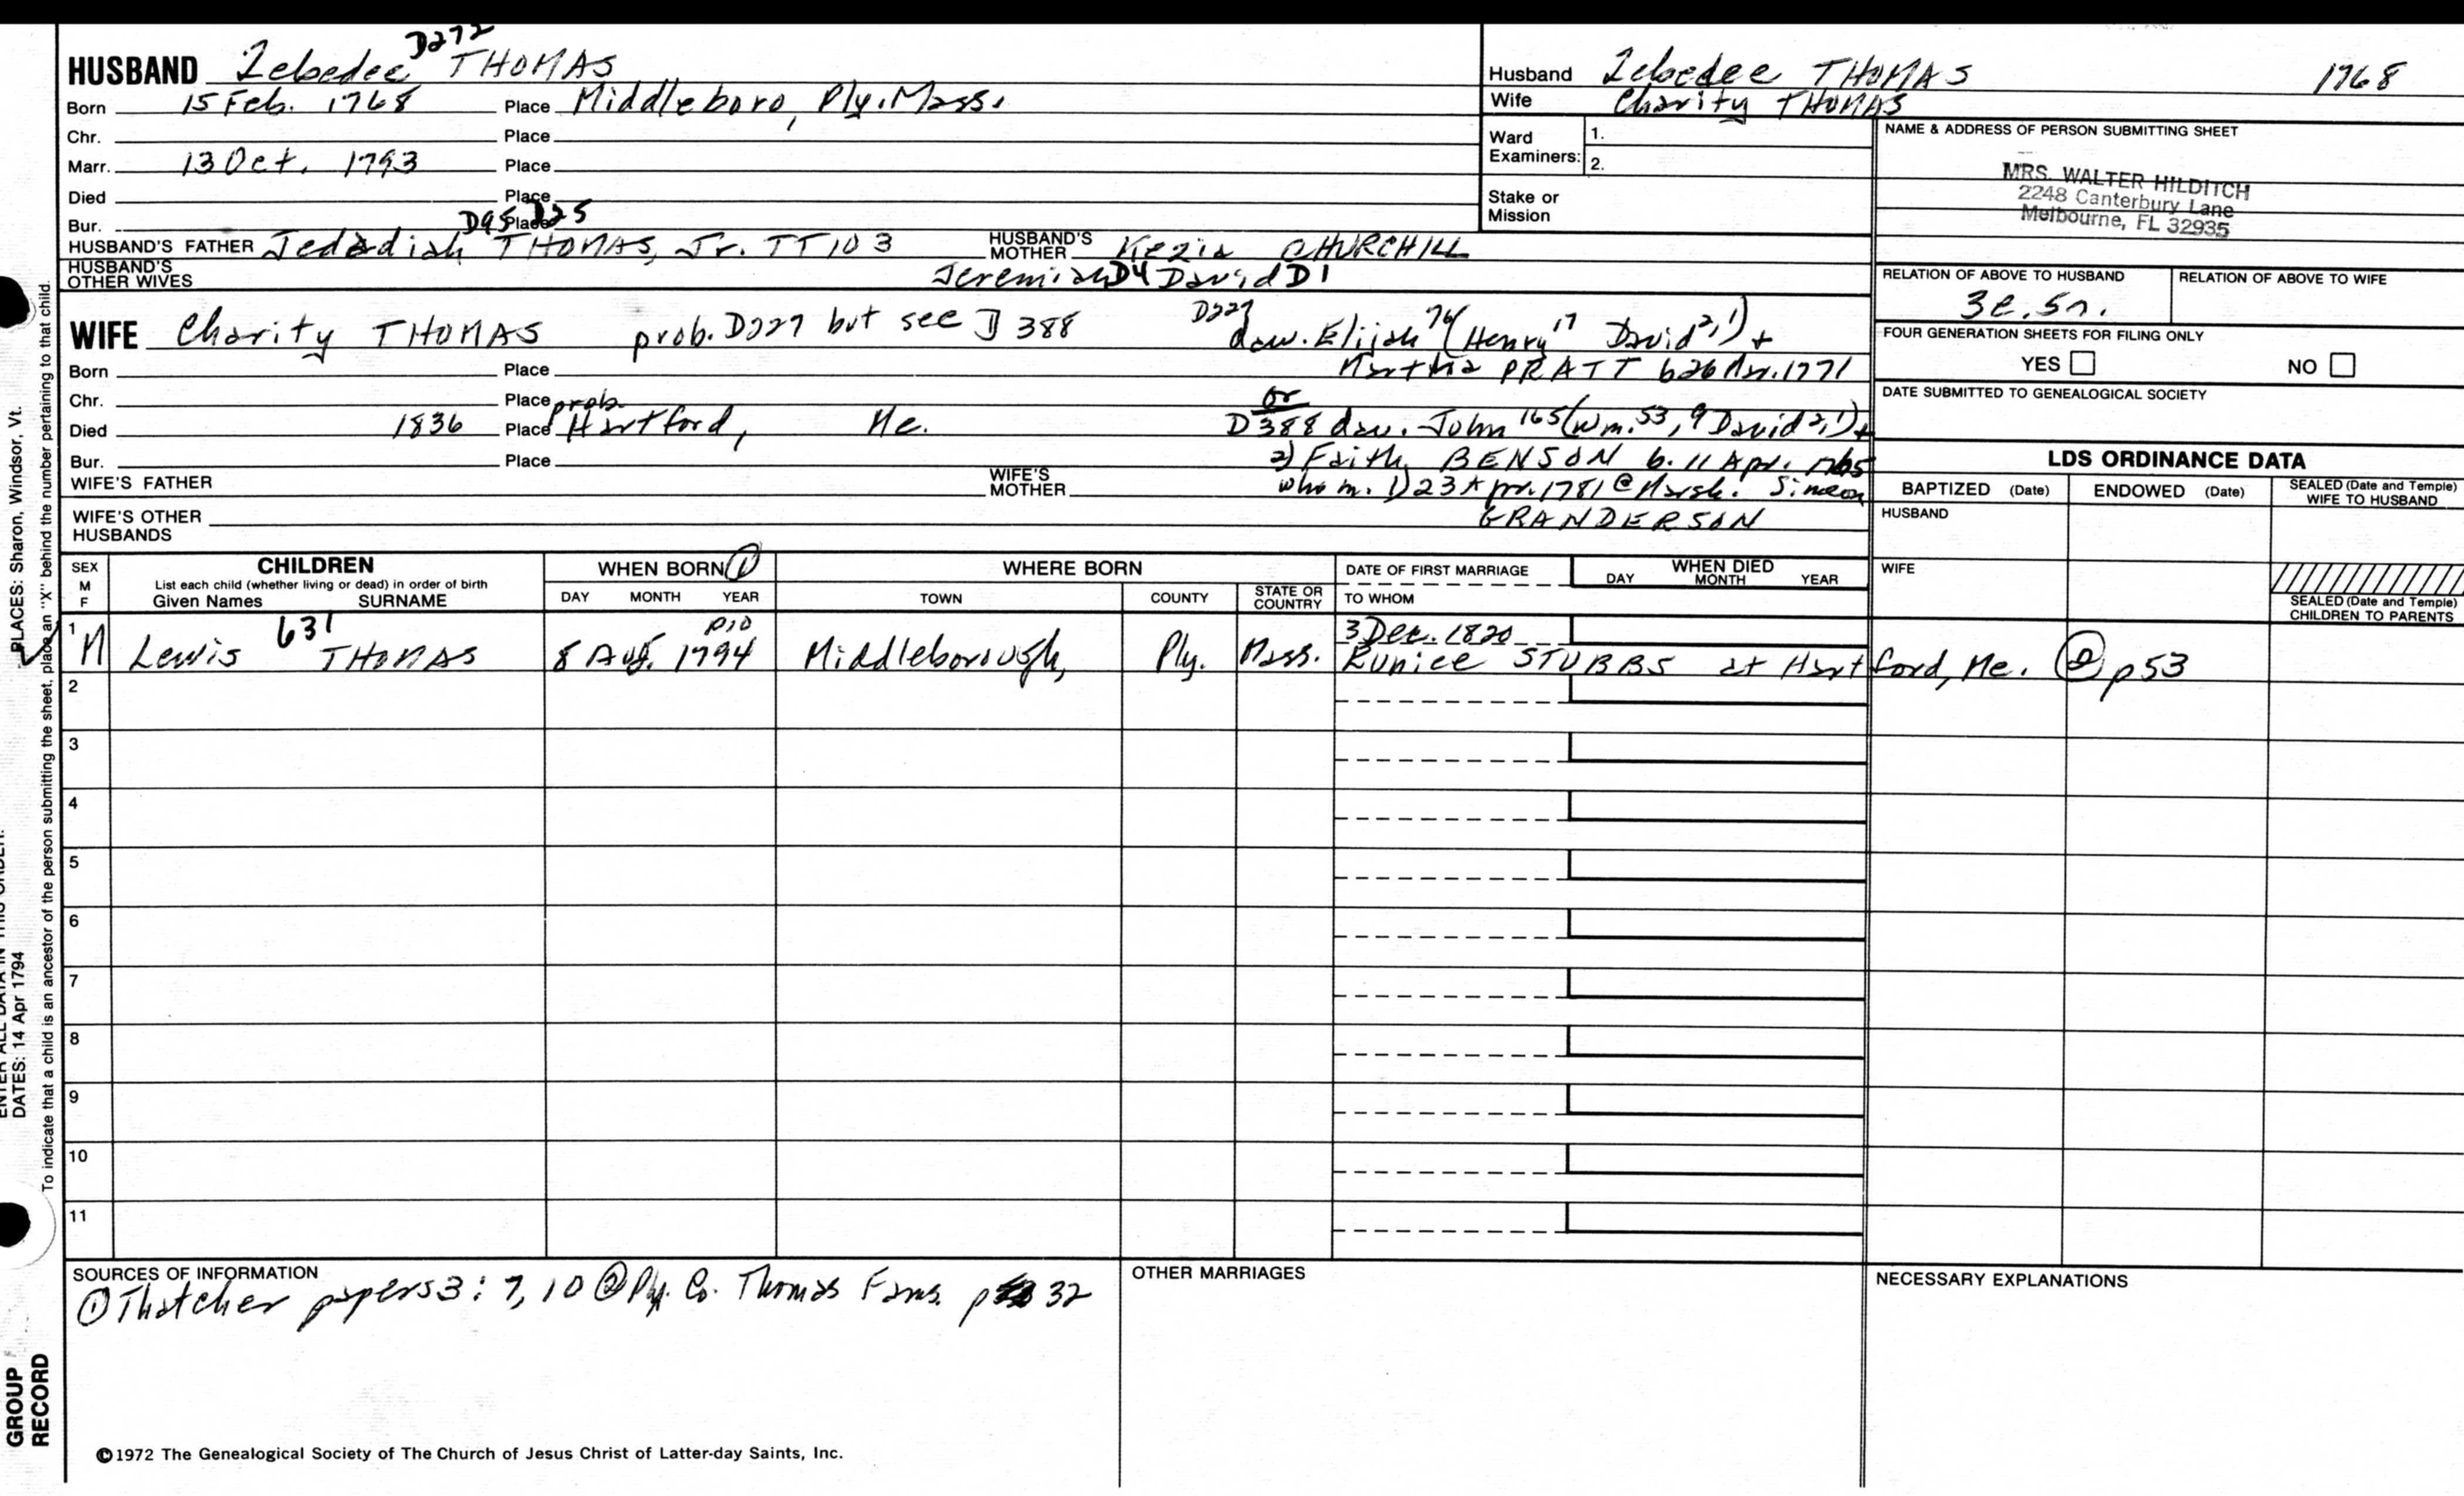 HUSBAND Zebedee D272 THOMAS
Born 15 Feb. 1768 Place Middleboro, Ply. Mass.
Chr. Place
Marr. 13 Oct. 1793 Place
Died Place
Bur. Place
D95 D25
HUSBAND'S FATHER Jedediah THOMAS, Jr. TT103 HUSBAND'S MOTHER Kezia CHURCHILL
HUSBAND'S OTHER WIVES Jeremiah D4 David D1
Husband Zebedee THOMAS 1768
Wife Charity THOMAS
Ward Examiners: 1.
2.
Stake or Mission
NAME & ADDRESS OF PERSON SUBMITTING SHEET
MRS. WALTER HILDITCH
2248 Canterbury Lane
Melbourne, FL 32935
RELATION OF ABOVE TO HUSBAND RELATION OF ABOVE TO WIFE
FOUR GENERATION SHEETS FOR FILING ONLY
YES NO
DATE SUBMITTED TO GENEALOGICAL SOCIETY
WIFE Charity THOMAS prob. D227 but see D 388
D227 daw. Elijah 76 (Henry 17 David 2,1) +
Martha PRATT b 26 Mar. 1771
or
D388 daw. John 165 (Wm. 53, 9 David 2,1) +
2) Faith BENSON b. 11 Apr. 1765
who m. 1) 23 Apr. 1781 @ Marsh. Simeon
GRANDERSON
Born Place
Chr. Place
Died 1836 Place prob. Hartford, Me.
Bur. Place
WIFE'S FATHER WIFE'S MOTHER
WIFE'S OTHER HUSBANDS
LDS ORDINANCE DATA
BAPTIZED (Date) ENDOWED (Date) SEALED (Date and Temple) WIFE TO HUSBAND
HUSBAND
WIFE
SEALED (Date and Temple) CHILDREN TO PARENTS
SEX M F
CHILDREN
List each child (whether living or dead) in order of birth
Given Names SURNAME
WHEN BORN ①
DAY MONTH YEAR
WHERE BORN
TOWN COUNTY STATE OR COUNTRY
DATE OF FIRST MARRIAGE
TO WHOM
WHEN DIED
DAY MONTH YEAR
1 M Lewis 631 THOMAS 8 Aug. 1794 p10 Middleborough, Ply. Mass. 3 Dec. 1820
Eunice STUBBS at Hartford, Me. ② p53
2
3
4
5
6
7
8
9
10
11
SOURCES OF INFORMATION
① Thatcher papers 3: 7, 10 ② Ply. Co. Thomas Fams. p 32
OTHER MARRIAGES
NECESSARY EXPLANATIONS
©1972 The Genealogical Society of The Church of Jesus Christ of Latter-day Saints, Inc.
PLACES: Sharon, Windsor, Vt.
DATES: 14 Apr 1794
To indicate that a child is an ancestor of the person submitting the sheet, place an "X" behind the number pertaining to that child.
GROUP
RECORD